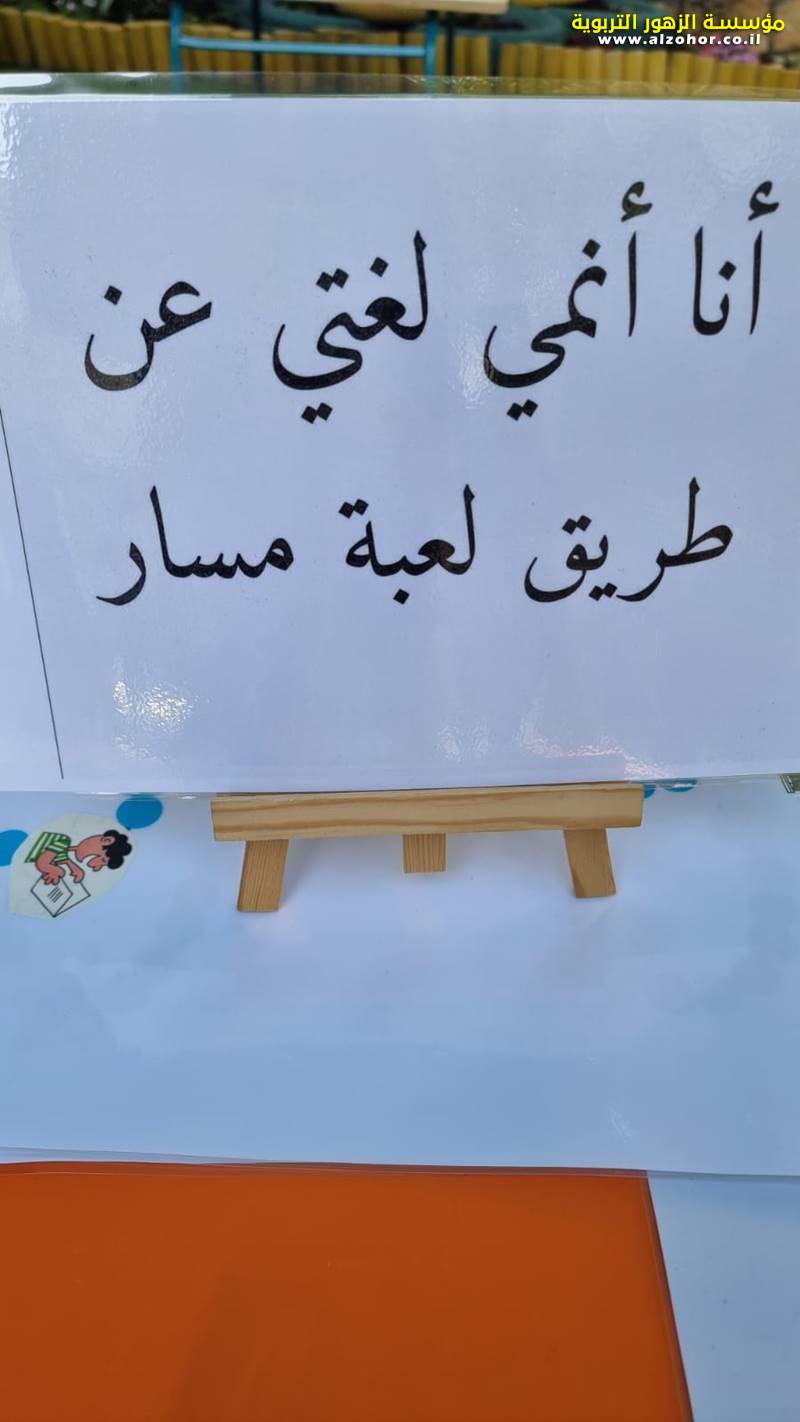 مؤسسة الزهور التربوية
www.alzohor.co.il
أنا أنمي لغتي عن
طريق لعبة مسار